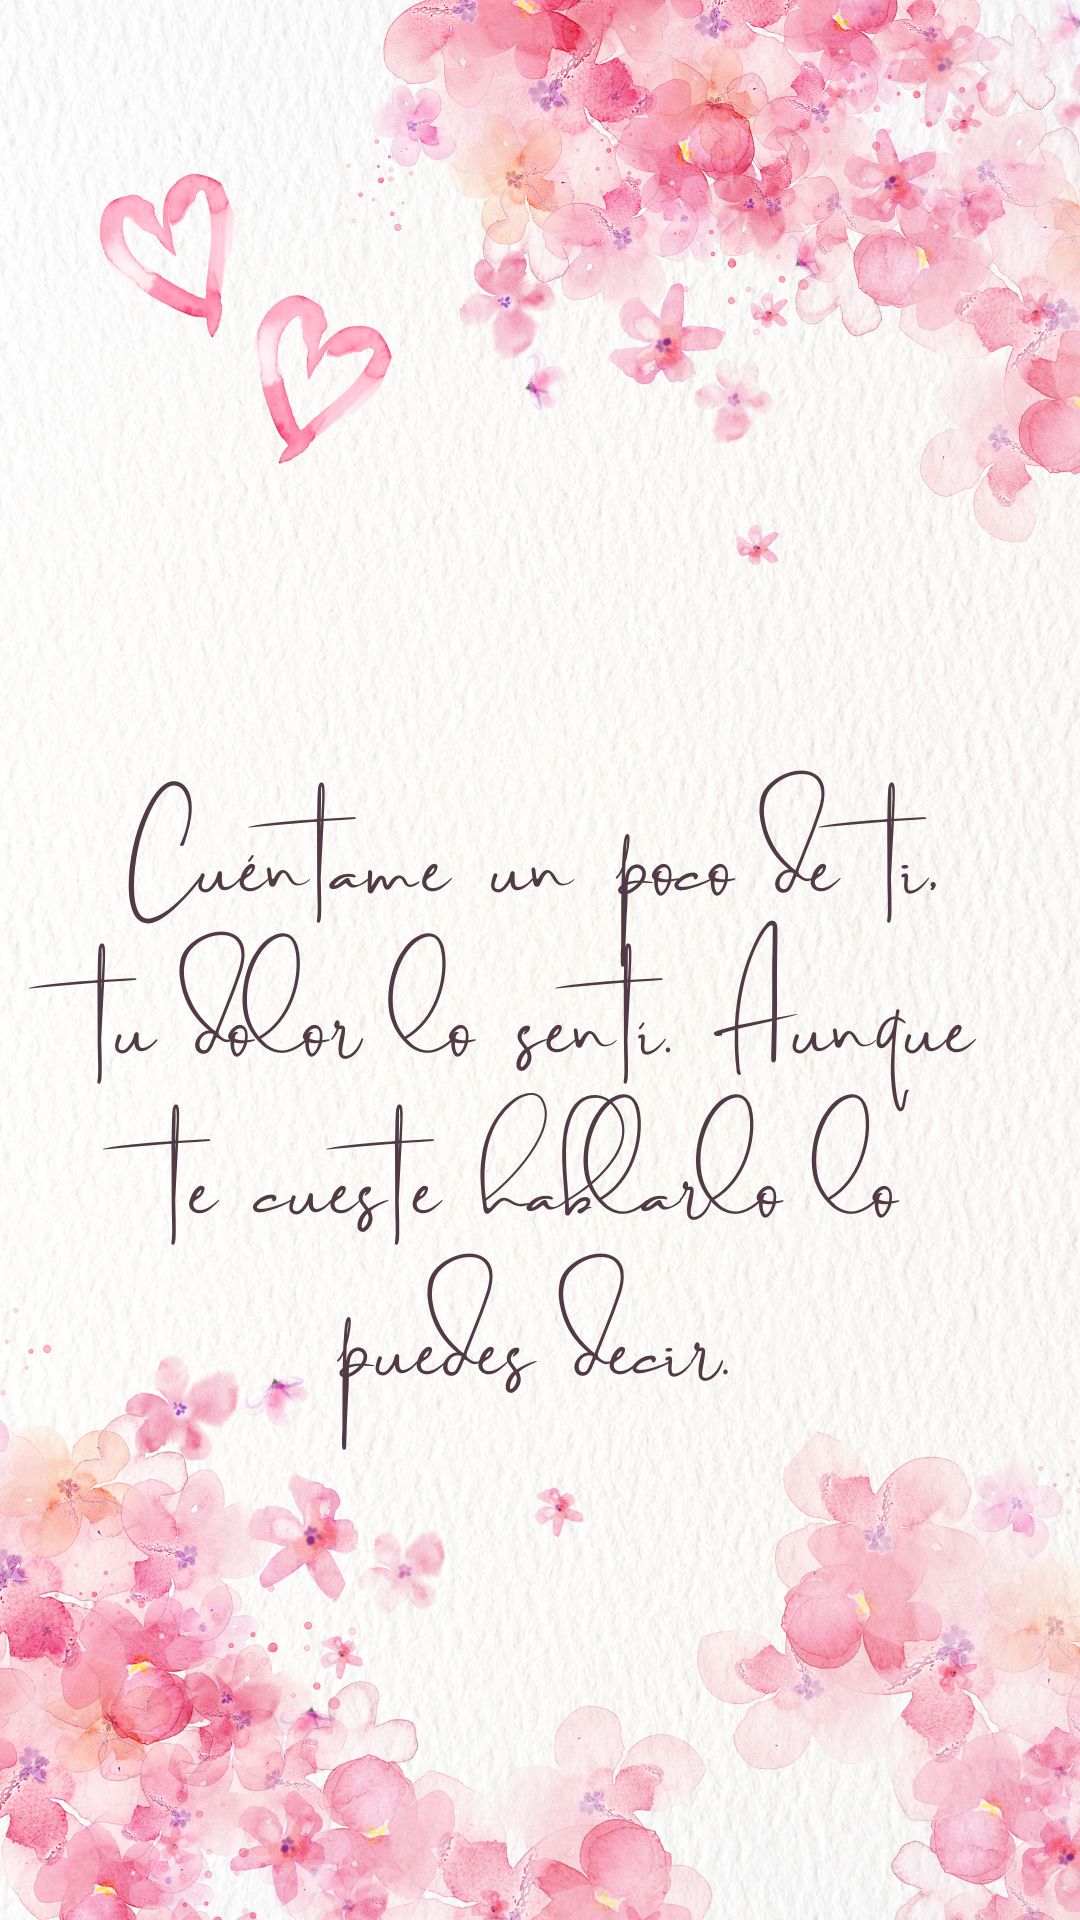 Cuéntame un poco de ti,
tu dolor lo sentí. Aunque
te cueste hablarlo lo
puedes decir.